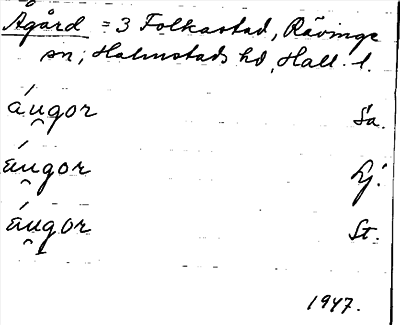 Ågård = 3 Folkastad, Rävinge
sn; Halmstads hd, Hall. l.
áu̯gor Sa.
áu̯gor Lj.
áu̯gor St.
1947.